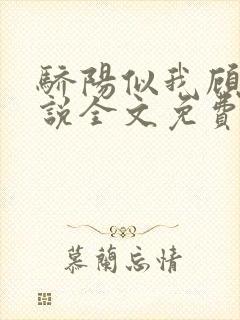 驕陽似我顧
說全文免費
慕蘭忘情